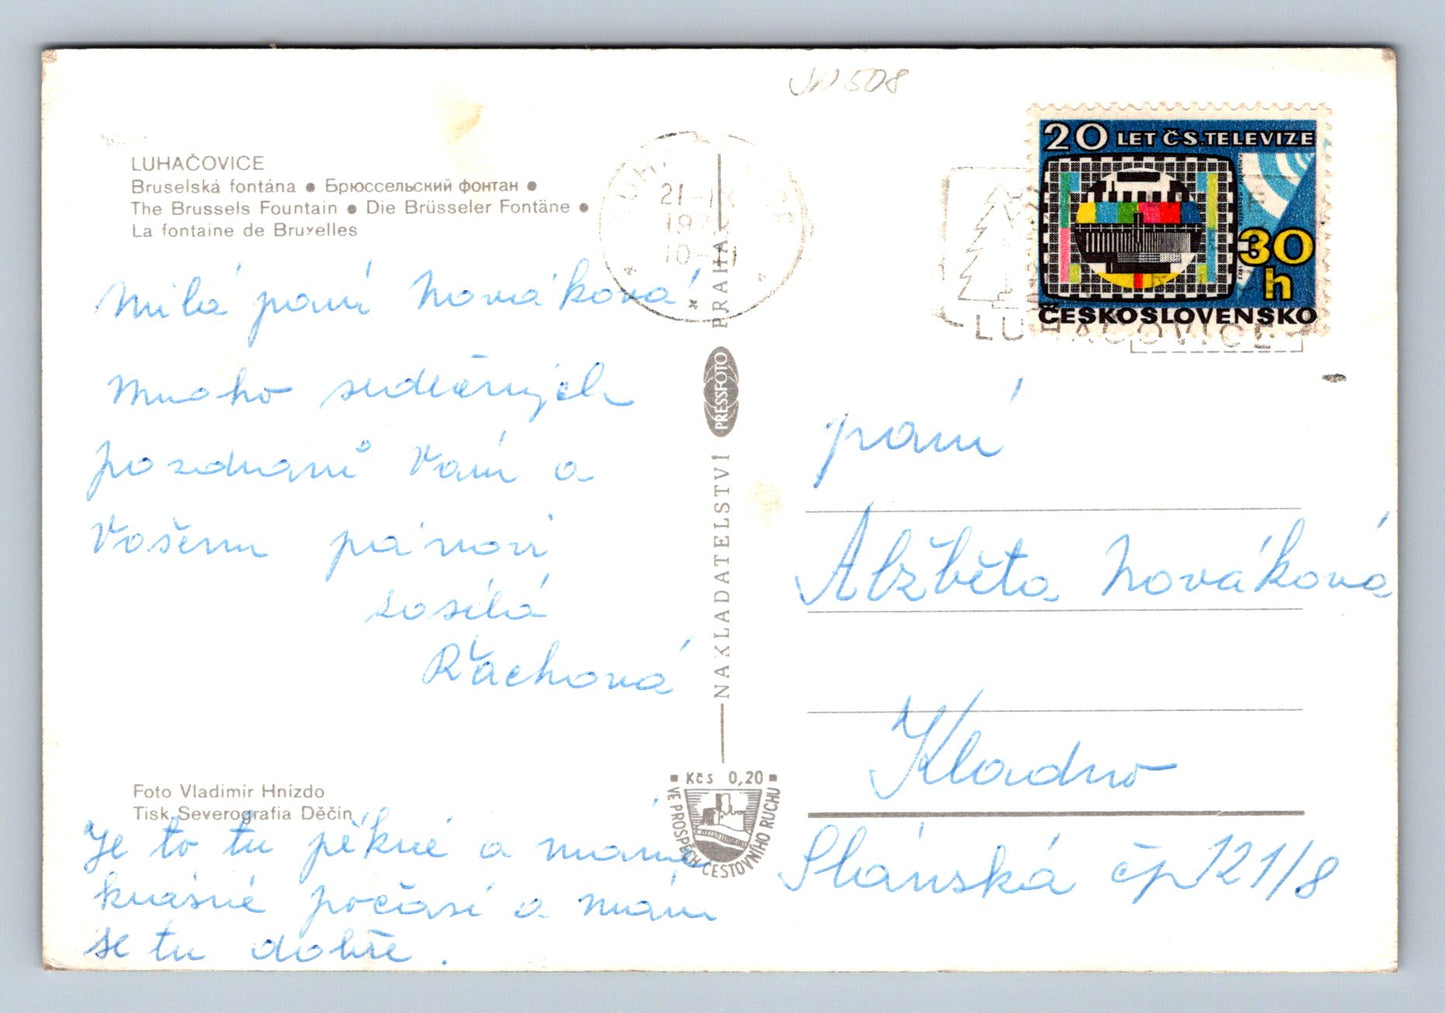 LUHAČOVICE
Bruselská fontána ● Брюссельский фонтан ●
The Brussels Fountain ● Die Brüsseler Fontäne ●
La fontaine de Bruxelles
Milá paní Nováková
Mnoho srdečných
pozdravů Vám a
Vašemu pánovi
zasílá
Řáchová
Foto Vladimír Hnízdo
Tisk Severografia Děčín
Je to tu pěkné a máme
krásné počasí a mám
se tu dobře.
NAKLADATELSTVÍ PRESSFOTO PRAHA
Kčs 0,20
VE PROSPĚCH CESTOVNÍHO RUCHU
20 LET ČS. TELEVIZE
30
h
ČESKOSLOVENSKO
LUHAČOVICE
paní
Alžběta Nováková
Kladno
Slánská čp 121/8